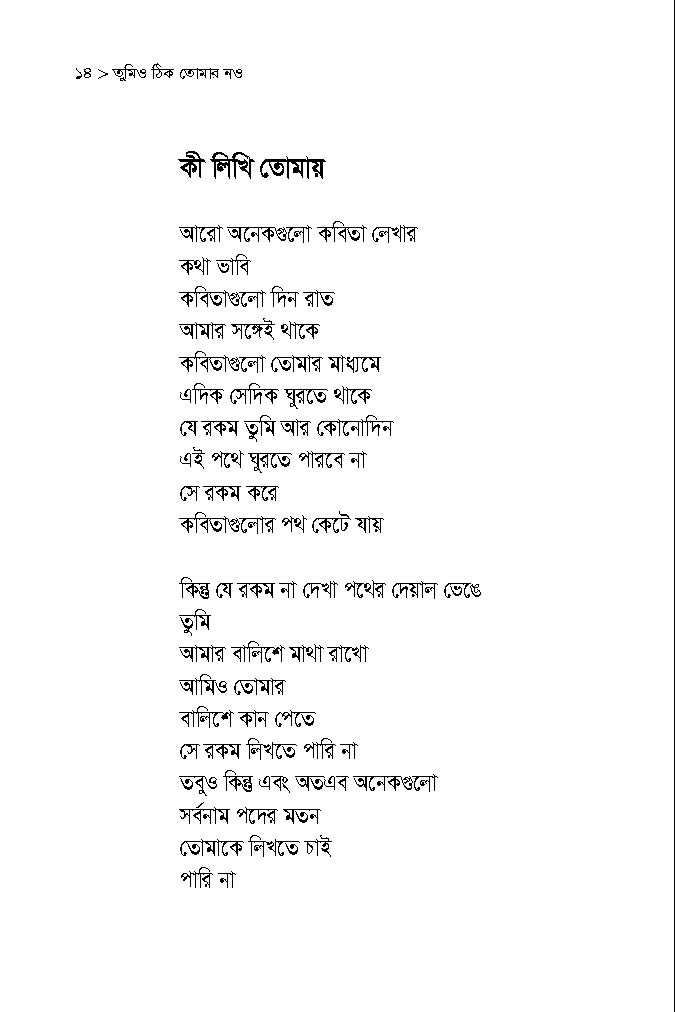 ১৪ > তুমিও ঠিক তোমার নও
কী লিখি তোমায়
আরো অনেকগুলো কবিতা লেখার
কথা ভাবি
কবিতাগুলো দিন রাত
আমার সঙ্গেই থাকে
কবিতাগুলো তোমার মাধ্যমে
এদিক সেদিক ঘুরতে থাকে
যে রকম তুমি আর কোনোদিন
এই পথে ঘুরতে পারবে না
সে রকম করে
কবিতাগুলোর পথ কেটে যায়
কিন্তু যে রকম না দেখা পথের দেয়াল ভেঙে
তুমি
আমার বালিশে মাথা রাখো
আমিও তোমার
বালিশে কান পেতে
সে রকম লিখতে পারি না
তবুও কিন্তু এবং অতএব অনেকগুলো
সর্বনাম পদের মতন
তোমাকে লিখতে চাই
পারি না